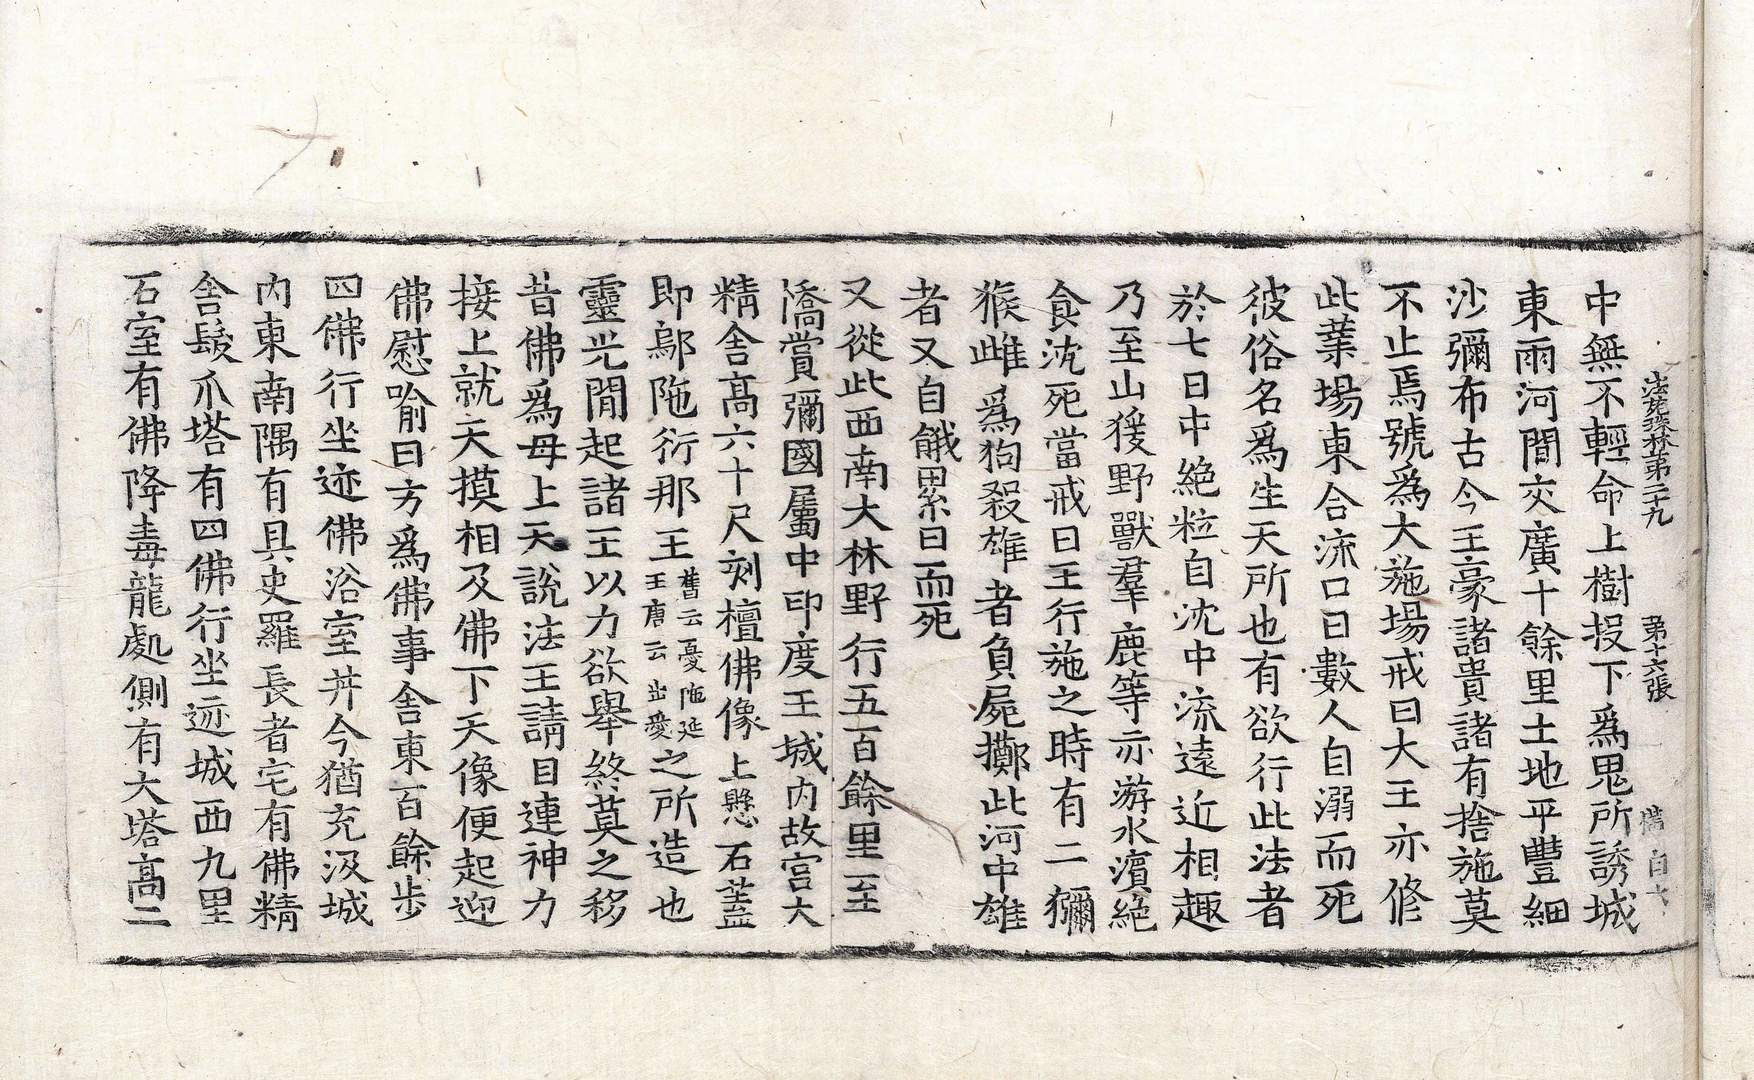 法苑珠林第二十九　第十六張
中無不輕命上樹投下爲鬼所誘城
東兩河間交廣十餘里土地平豐細
沙彌布古今王豪諸貴諸有捨施莫
不止焉號爲大施場戒日大王亦修
此業場東合流口日數人自溺而死
彼俗名爲生天所也有欲行此法者
於七日中絶粒自沈中流遠近相趣
乃至山猨野獸羣鹿等亦游水濱絶
食沈死當戒日王行施之時有二獼
猴雌爲狗殺雄者負屍擲此河中雄
者又自餓累日而死
又從此西南大林野行五百餘里至
憍賞彌國屬中印度王城内故宫大
精舎高六十尺刻檀佛像上懸石蓋
即鄔陁衍那王舊云憂陁延王唐云出愛之所造也
靈光閒起諸王以力欲舉終莫之移
昔佛爲母上天說法王請目連神力
接上就天摸相及佛下天像便起迎
佛慰喻曰方爲佛事舎東百餘步
四佛行坐迹佛浴室井今猶充汲城
内東南隅有具史羅長者宅有佛精
舎髮爪塔有四佛行坐迹城西九里
石室有佛降毒龍處側有大塔高二